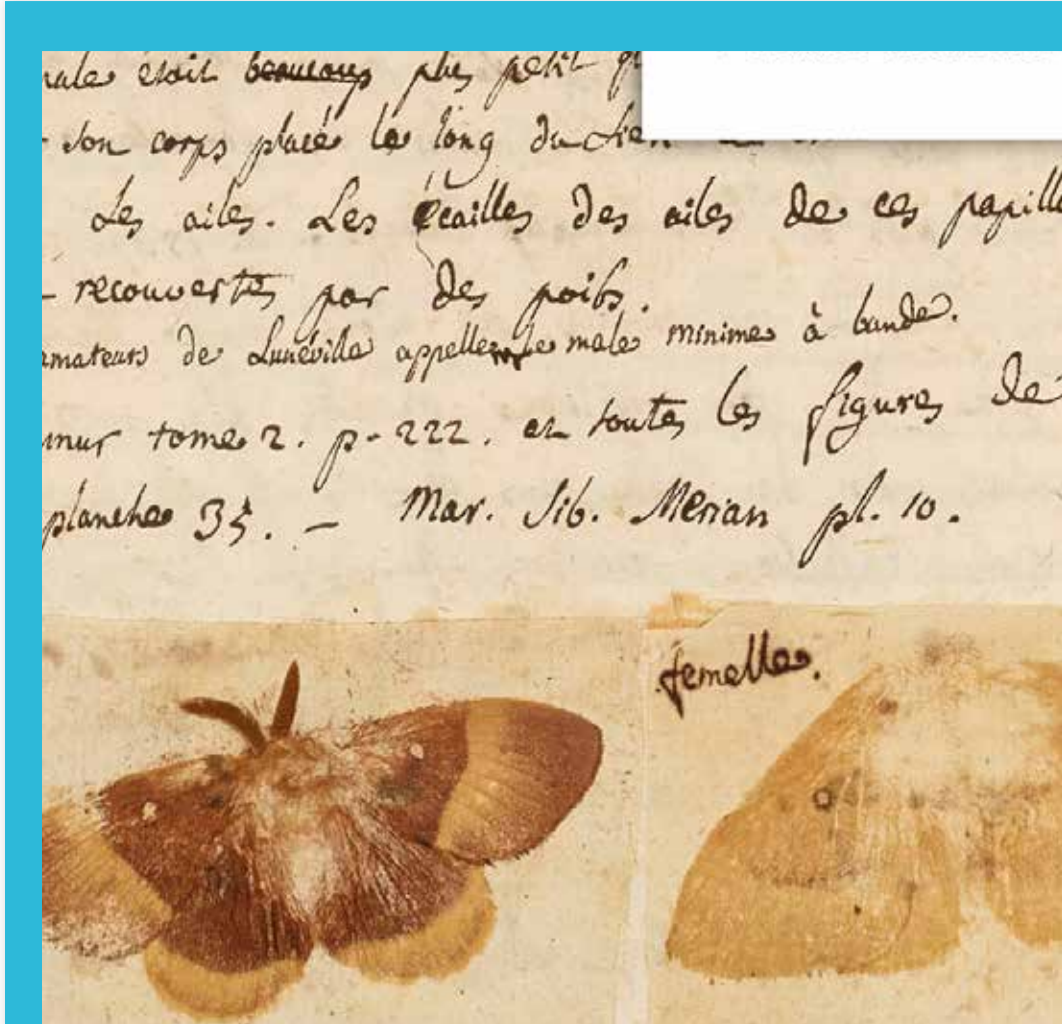 male étoit beaucoup plus petit
son corps placé le long du
les ailes. Les écailles des ailes de ces papill
recouvertes par des poils.
amateurs de Lunéville appellent le male minime à bande.
mur tome 2. p. 222. et toutes les figures de
planche 35. — Mar. Sib. Merian pl. 10.
femelle.